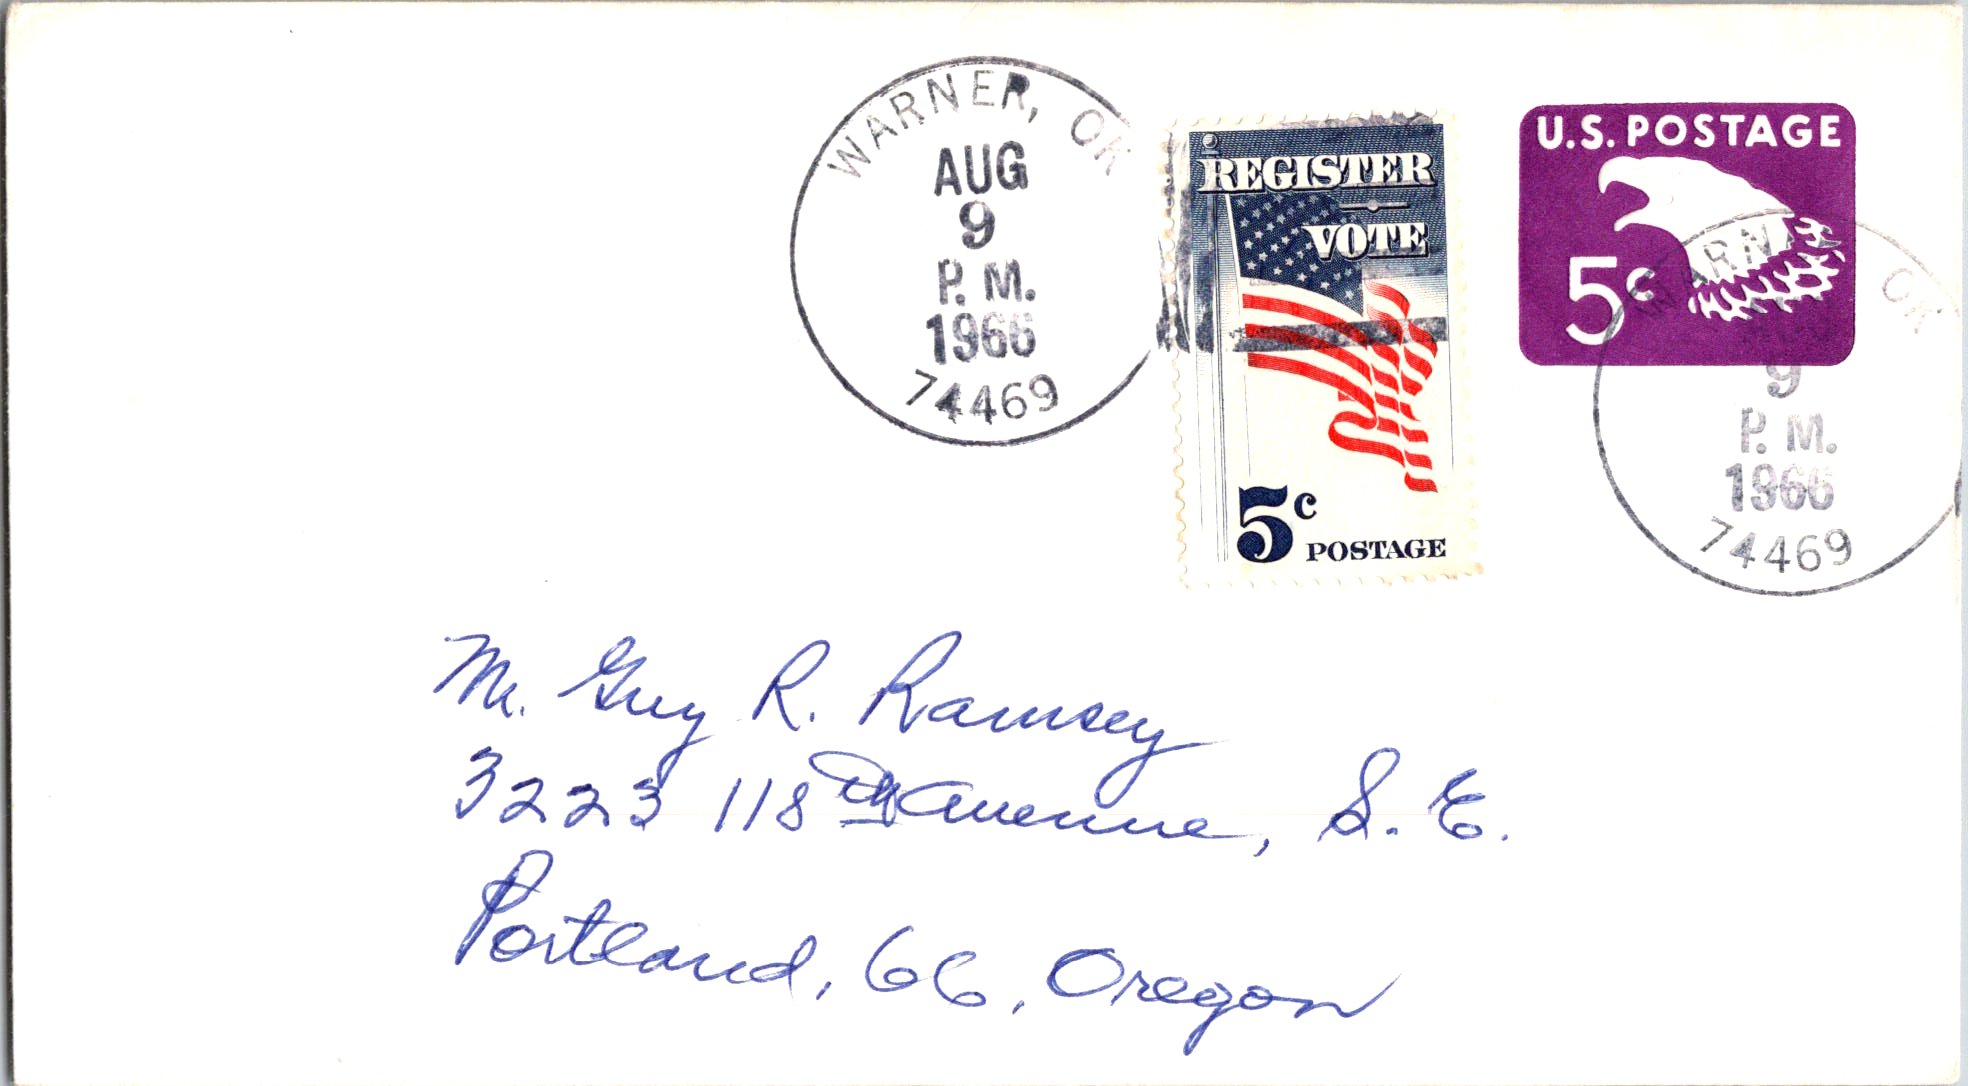 WARNER, OK
AUG
9
P. M.
1966
74469
REGISTER
VOTE
5c POSTAGE
U.S. POSTAGE
5c
WARNER, OK
9
P. M.
1966
74469
Mr. Guy R. Ramsey
3223 118th Avenue, S. E.
Portland, 66, Oregon